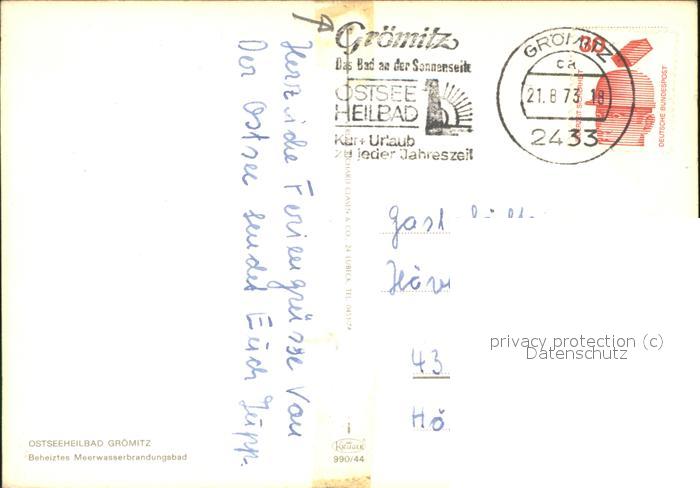 Grömitz
Das Bad an der Sonnenseite
OSTSEE
HEILBAD
Kur + Urlaub
zu jeder Jahreszeit
GRÖMITZ
ca
21.8.73.18
2433
30
DEUTSCHE BUNDESPOST
Herzliche Feriengrüsse Von
Der Ostsee sendet Euch Jupp.
& CO. 24 LÜBECK, TEL.
Gast
43
Hö
privacy protection (c)
Datenschutz
OSTSEEHEILBAD GRÖMITZ
Beheiztes Meerwasserbrandungsbad
KRÜGER
990/44